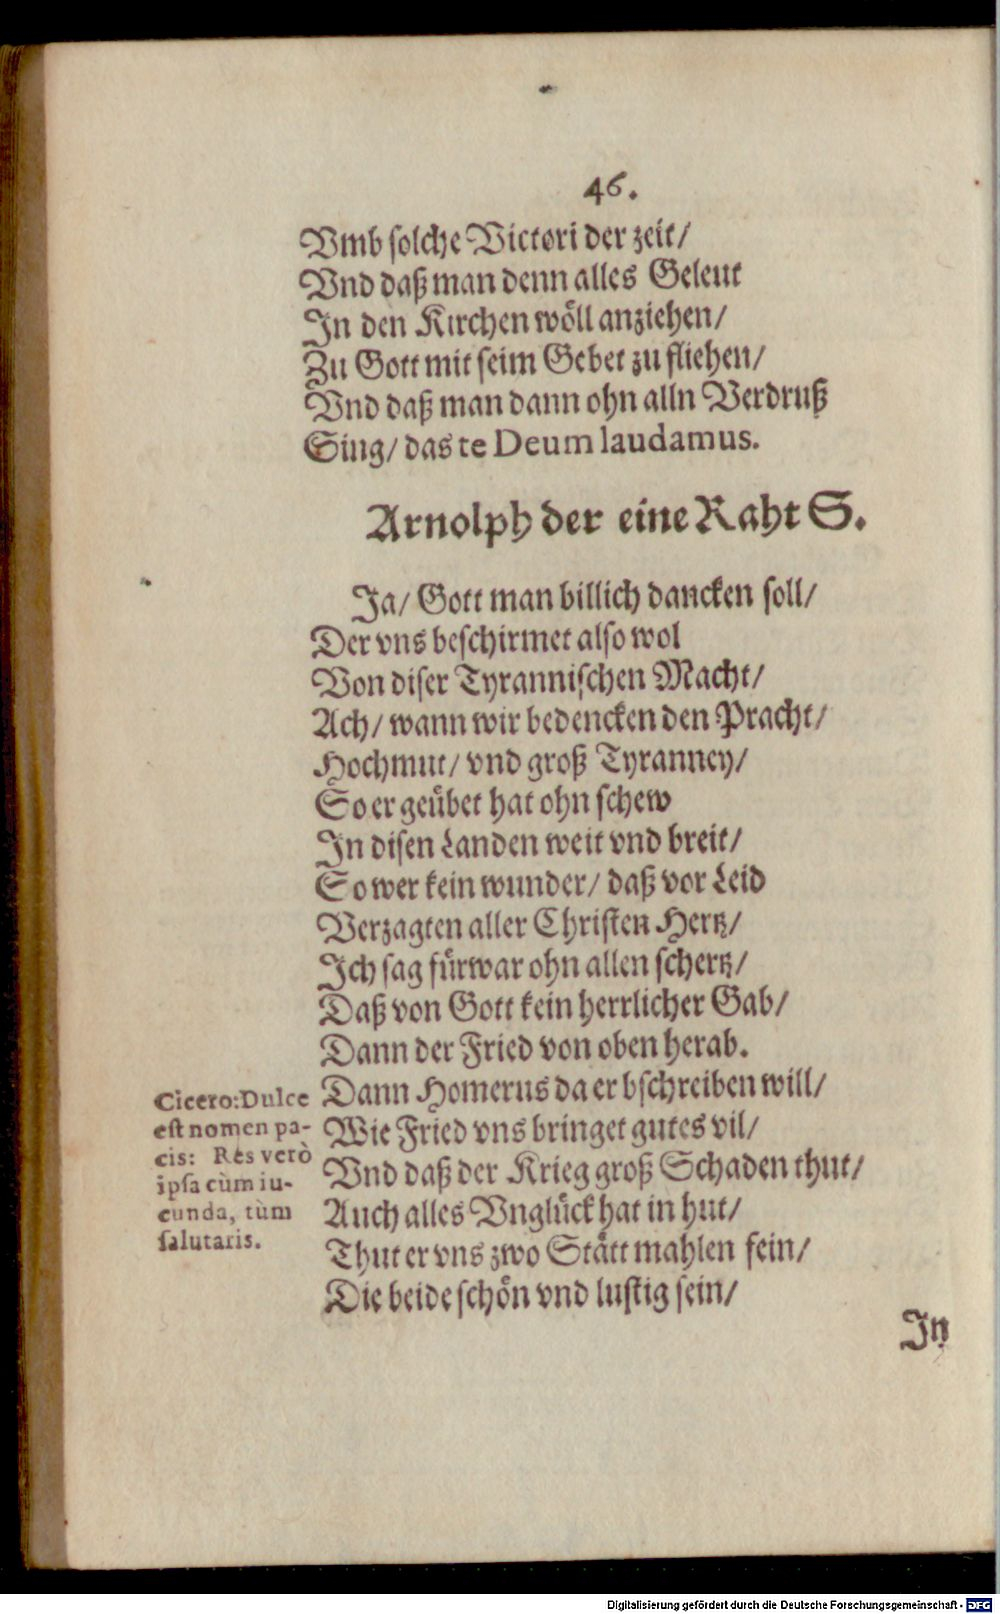 46.
Vmb solche Victori der zeit/
Vnd daß man denn alles Geleut
In den Kirchen wöll anziehen/
Zu Gott mit seim Gebet zu fliehen/
Vnd daß man dann ohn alln Verdruß
Sing/ das te Deum laudamus.
Arnolph der eine Raht S.
Ja/ Gott man billich dancken soll/
Der vns beschirmet also wol
Von diser Tyrannischen Macht/
Ach/ wann wir bedencken den Pracht/
Hochmut/ vnd groß Tyranney/
So er geübet hat ohn schew
In disen Landen weit vnd breit/
So wer kein wunder/ daß vor Leid
Verzagten aller Christen Hertz/
Ich sag fürwar ohn allen schertz/
Daß von Gott kein herrlicher Gab/
Dann der Fried von oben herab.
Dann Homerus da er bschreiben will/
Wie Fried vns bringet gutes vil/
Vnd daß der Krieg groß Schaden thut/
Auch alles Vnglück hat in hut/
Thut er vns zwo Stätt mahlen fein/
Die beide schön vnd lustig sein/
Cicero: Dulce
est nomen pa-
cis: Res verò
ipsa cùm iu-
cunda, tùm
salutaris.
In
Digitalisierung gefördert durch die Deutsche Forschungsgemeinschaft - DFG